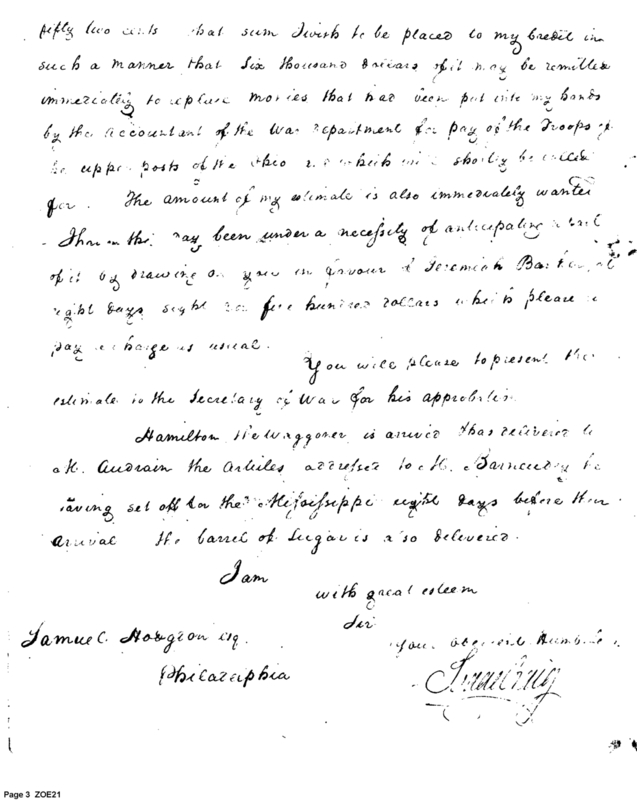 fifty two cents that sum I wish to be placed to my Credit in
such a manner that Six thousand dollars of it may be remitted
immediately to replace monies that had been put into my hands
by the Accountant of the War department for pay of the Troops
upper posts of the Ohio which shortly be called
for. The amount of my estimate is also immediately wanted
I have this day been under a necessity of anticipating
of it by drawing on you in favour of Jeremiah Barker at
eight days sight for five hundred dollars which please
pay charge as usual.
You will please to present the
estimate to the Secretary of War for his approbation
Hamilton the Waggoner is arived & has delivered to
Mr. Audrain the Articles addressed to Mr. he
having set off for the Mississippi eight days before their
arrival the barrel of Sugar is also delivered.
I am
with great esteem
Sir
Your Obedient Humble
Samuel Hodgdon Esq.
Philadelphia
Isaac Craig
Page 3 ZOE21